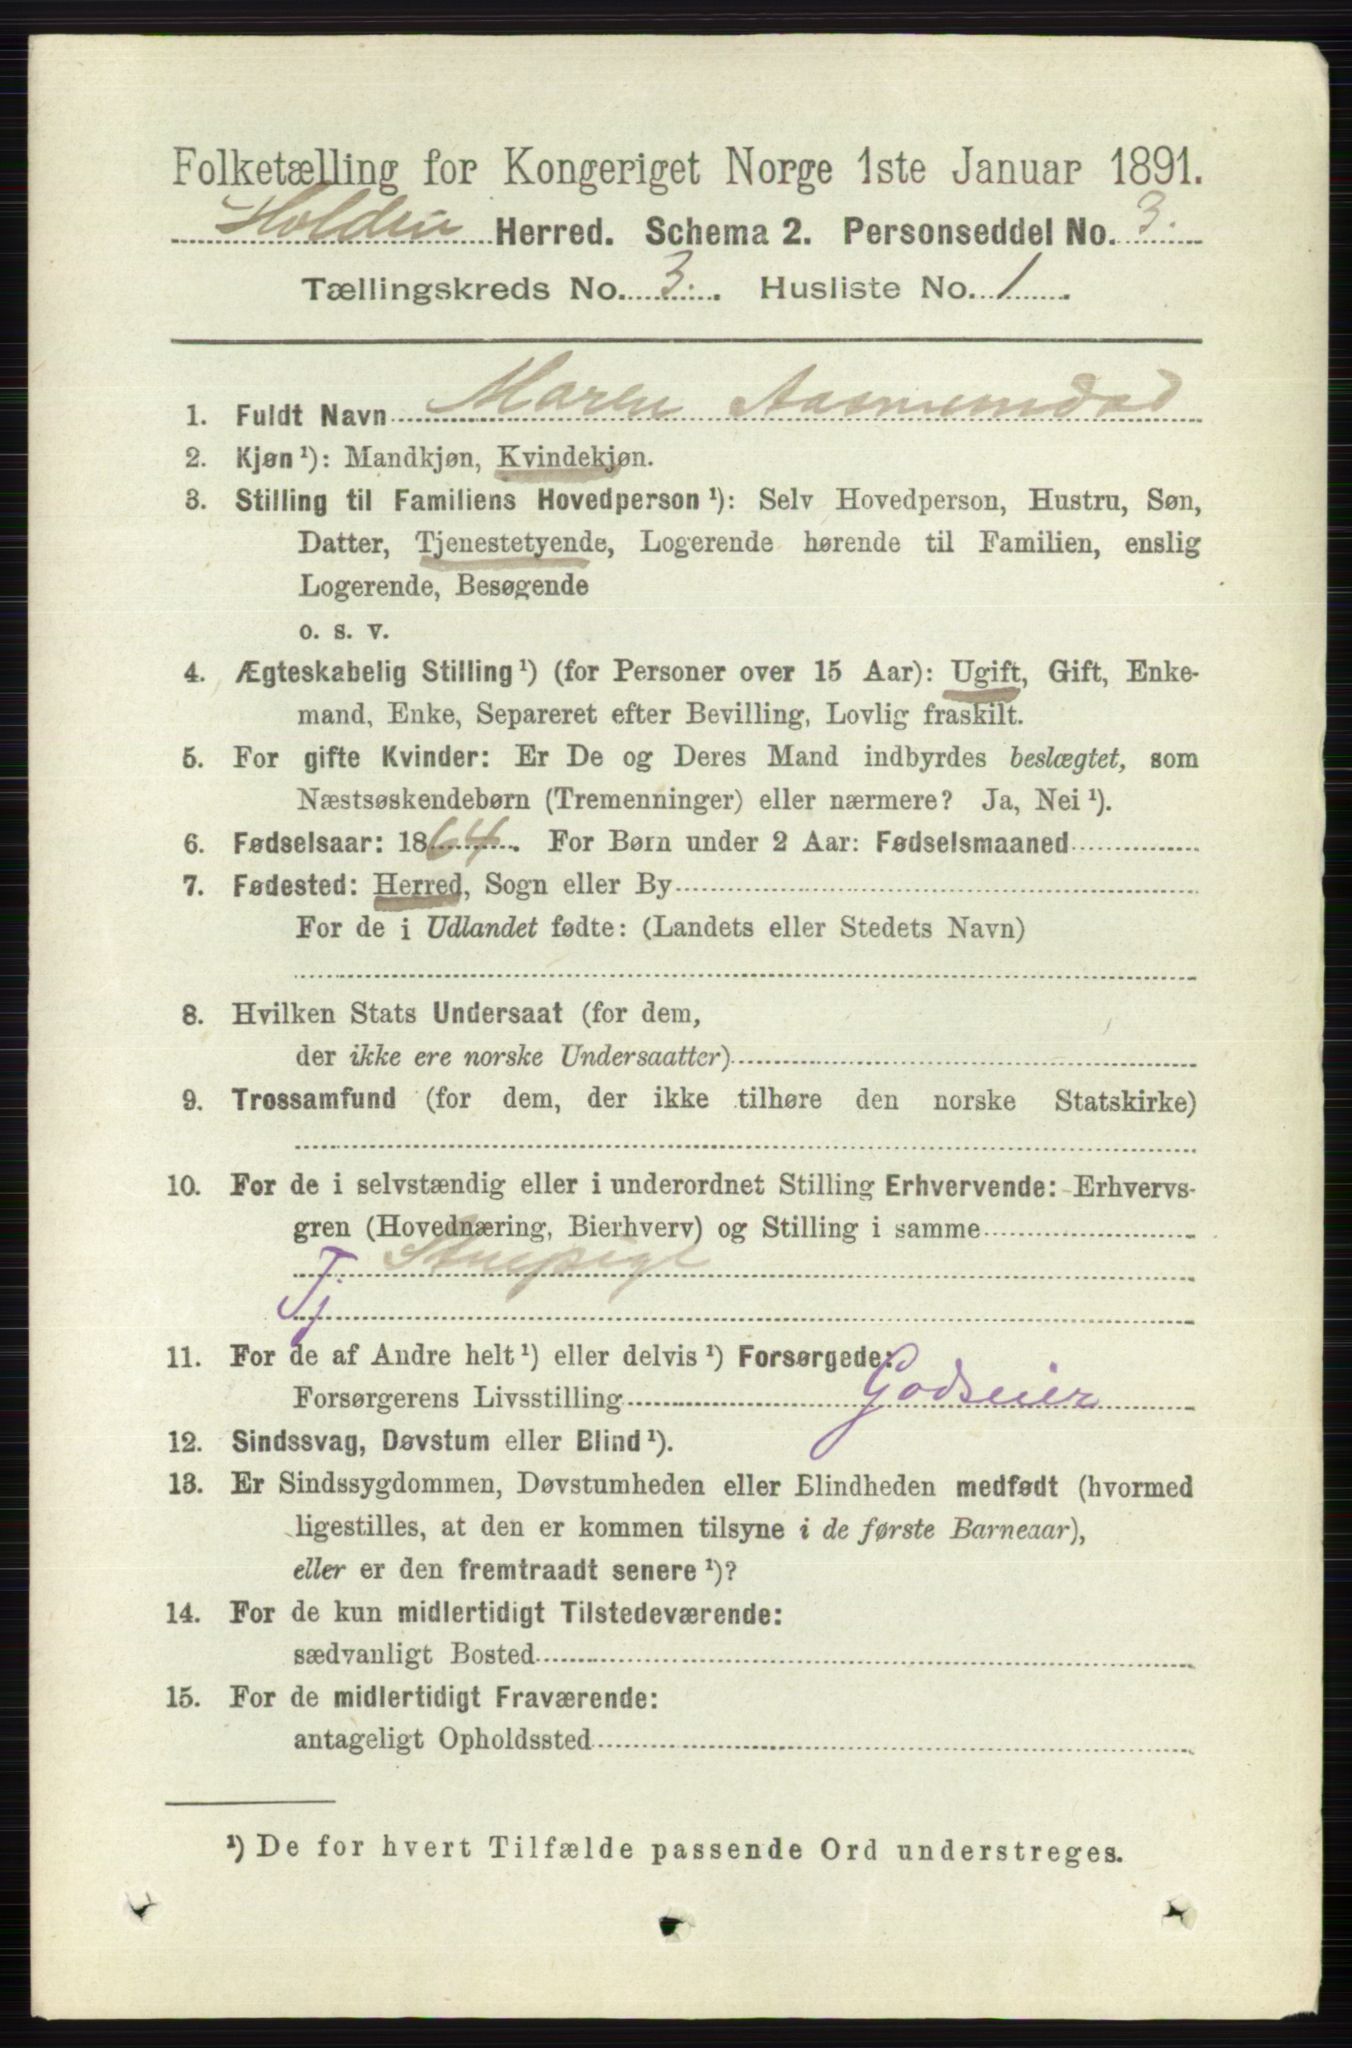 Folketælling for Kongeriget Norge 1ste Januar 1891.
Holden Herred. Schema 2. Personseddel No. 3.
Tællingskreds No. 3. Husliste No. 1.
1. Fuldt Navn Maren
2. Kjøn ¹): Mandkjøn, Kvindekjøn.
3. Stilling til Familiens Hovedperson ¹): Selv Hovedperson, Hustru, Søn,
Datter, Tjenestetyende, Logerende hørende til Familien, enslig
Logerende, Besøgende
o. s. v.
4. Ægteskabelig Stilling ¹) (for Personer over 15 Aar): Ugift, Gift, Enke-
mand, Enke, Separeret efter Bevilling, Lovlig fraskilt.
5. For gifte Kvinder: Er De og Deres Mand indbyrdes beslægtet, som
Næstsøskendebørn (Tremenninger) eller nærmere? Ja, Nei ¹).
6. Fødselsaar: 1864. For Børn under 2 Aar: Fødselsmaaned
7. Fødested: Herred, Sogn eller By
For de i Udlandet fødte: (Landets eller Stedets Navn)
8. Hvilken Stats Undersaat (for dem,
der ikke ere norske Undersaatter)
9. Trossamfund (for dem, der ikke tilhøre den norske Statskirke)
10. For de i selvstændig eller i underordnet Stilling Erhvervende: Erhvervs-
gren (Hovednæring, Bierhverv) og Stilling i samme
Stuepige
Tj
11. For de af Andre helt ¹) eller delvis ¹) Forsørgede:
Forsørgerens Livsstilling Godseier
12. Sindssvag, Døvstum eller Blind ¹).
13. Er Sindssygdommen, Døvstumheden eller Blindheden medfødt (hvormed
ligestilles, at den er kommen tilsyne i de første Barneaar),
eller er den fremtraadt senere ¹)?
14. For de kun midlertidigt Tilstedeværende:
sædvanligt Bosted
15. For de midlertidigt Fraværende:
antageligt Opholdssted
¹) De for hvert Tilfælde passende Ord understreges.